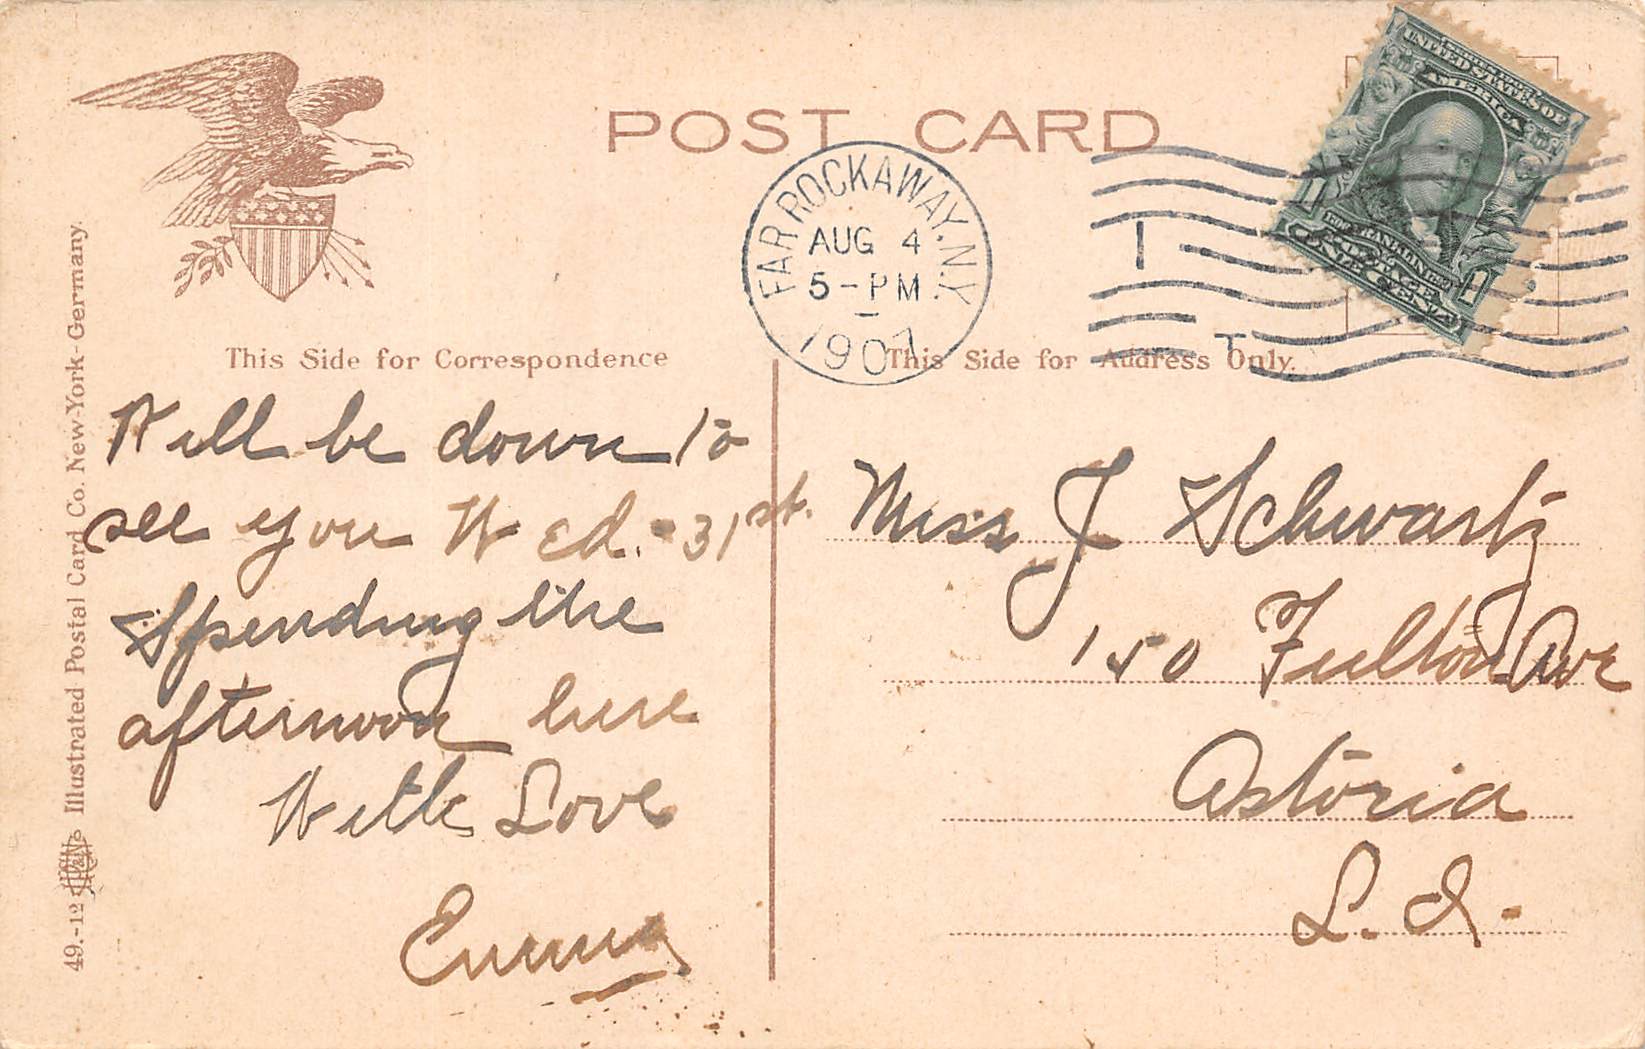 POST CARD
UNITED STATES OF
AMERICA
1 1
FRANKLIN
POSTAGE
ONE CENT
FAR ROCKAWAY. N.Y.
AUG 4
5-PM
1907
This Side for Correspondence
This Side for Address Only.
Will be down to
see you Wed. 31st.
Spending the
afternoon here
With Love
Emma
Miss J Schwartz
150 Fulton Ave
Astoria
L. I.
49.-12 Illustrated Postal Card Co. New-York-Germany.